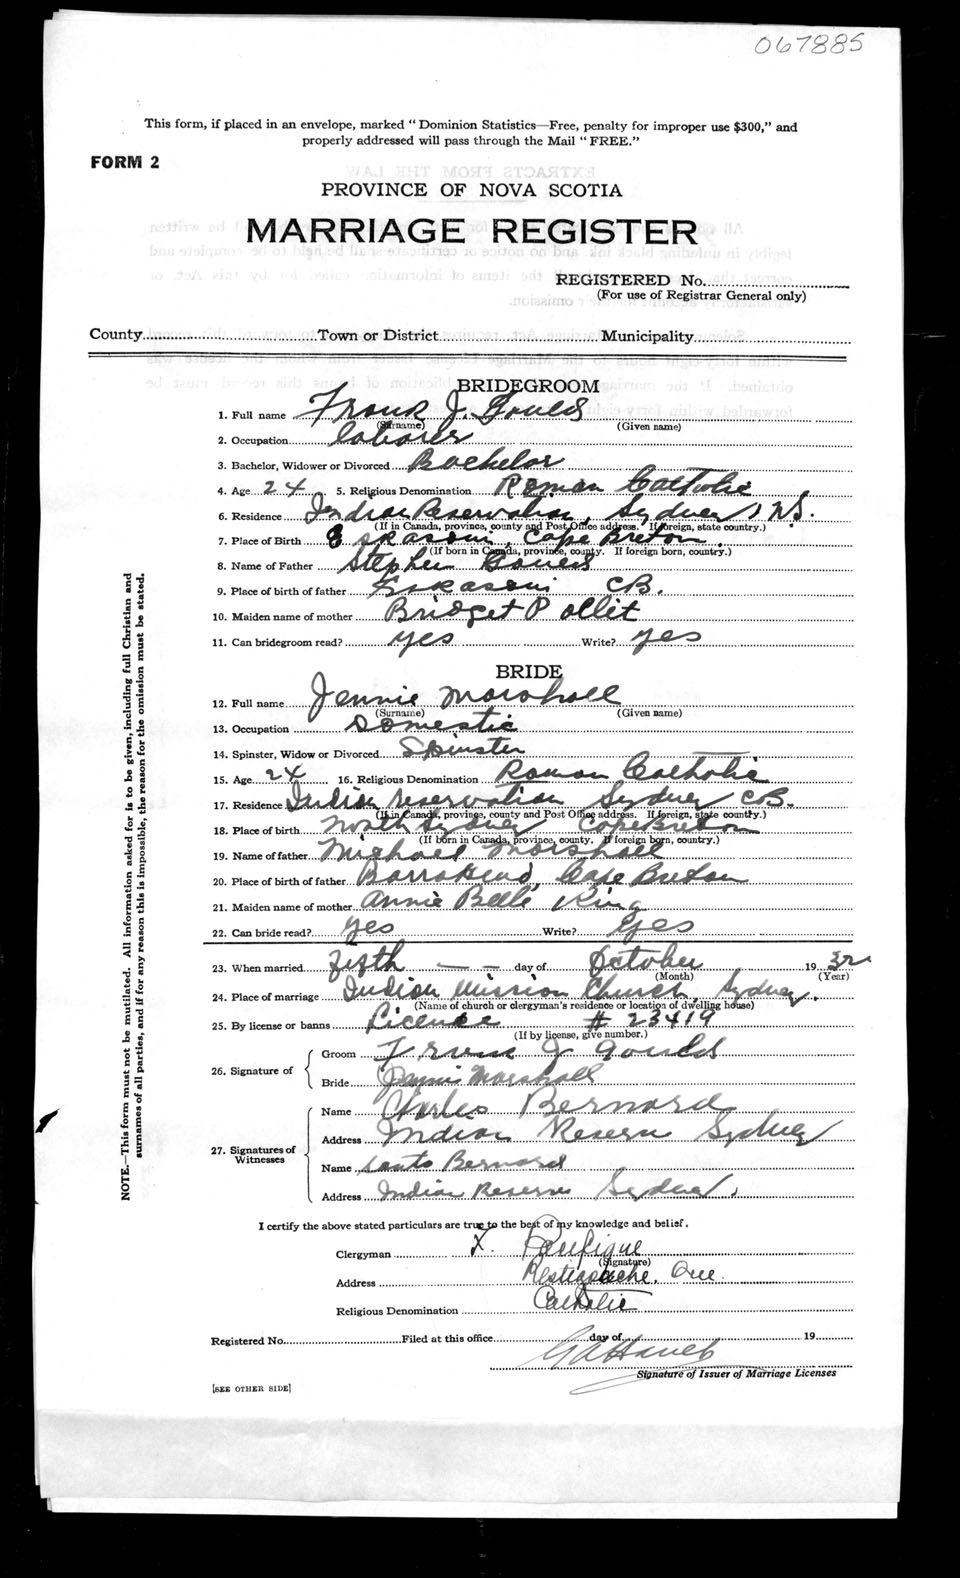 067885
This form, if placed in an envelope, marked "Dominion Statistics—Free, penalty for improper use $300," and
properly addressed will pass through the Mail "FREE."
FORM 2
PROVINCE OF NOVA SCOTIA
MARRIAGE REGISTER
REGISTERED No.
(For use of Registrar General only)
County Town or District Municipality
BRIDEGROOM
1. Full name Frank J. Gould
(Surname) (Given name)
2. Occupation laborer
3. Bachelor, Widower or Divorced Bachelor
4. Age 24 5. Religious Denomination Roman Catholic
6. Residence Indian Reservation, Sydney, N.S.
(If in Canada, province, county and Post Office address. If foreign, state country.)
7. Place of Birth Eskasoni, Cape Breton
(If born in Canada, province, county. If foreign born, country.)
8. Name of Father Stephen Gould
9. Place of birth of father Eskasoni CB.
10. Maiden name of mother Bridget Pollit
11. Can bridegroom read? yes Write? yes
BRIDE
12. Full name Jennie Marshall
(Surname) (Given name)
13. Occupation Domestic
14. Spinster, Widow or Divorced Spinster
15. Age 24 16. Religious Denomination Roman Catholic
17. Residence Indian reservation Sydney CB.
(If in Canada, province, county and Post Office address. If foreign, state country.)
18. Place of birth North Sydney Cape Breton
(If born in Canada, province, county. If foreign born, country.)
19. Name of father Michael Marshall
20. Place of birth of father Barrahead, Cape Breton
21. Maiden name of mother Annie Belle King
22. Can bride read? yes Write? yes
23. When married day of October 19 32
(Month) (Year)
24. Place of marriage Indian Mission Church, Sydney.
(Name of church or clergyman's residence or location of dwelling house)
25. By license or banns Licence # 23419
(If by license, give number.)
26. Signature of Groom Frank J Gould
Bride Jennie Marshall
27. Signatures of Witnesses Name Charles Bernard
Address Indian Reserve Sydney
Name Bernard
Address Indian Reserve Sydney
I certify the above stated particulars are true to the best of my knowledge and belief.
Clergyman F. Pacifique
(Signature)
Address Restigouche, Que.
Religious Denomination Catholic
Registered No. Filed at this office day of 19
Signature of Issuer of Marriage Licenses
[SEE OTHER SIDE]
NOTE.—This form must not be mutilated. All information asked for is to be given, including full Christian and
surnames of all parties, and if for any reason this is impossible, the reason for the omission must be stated.